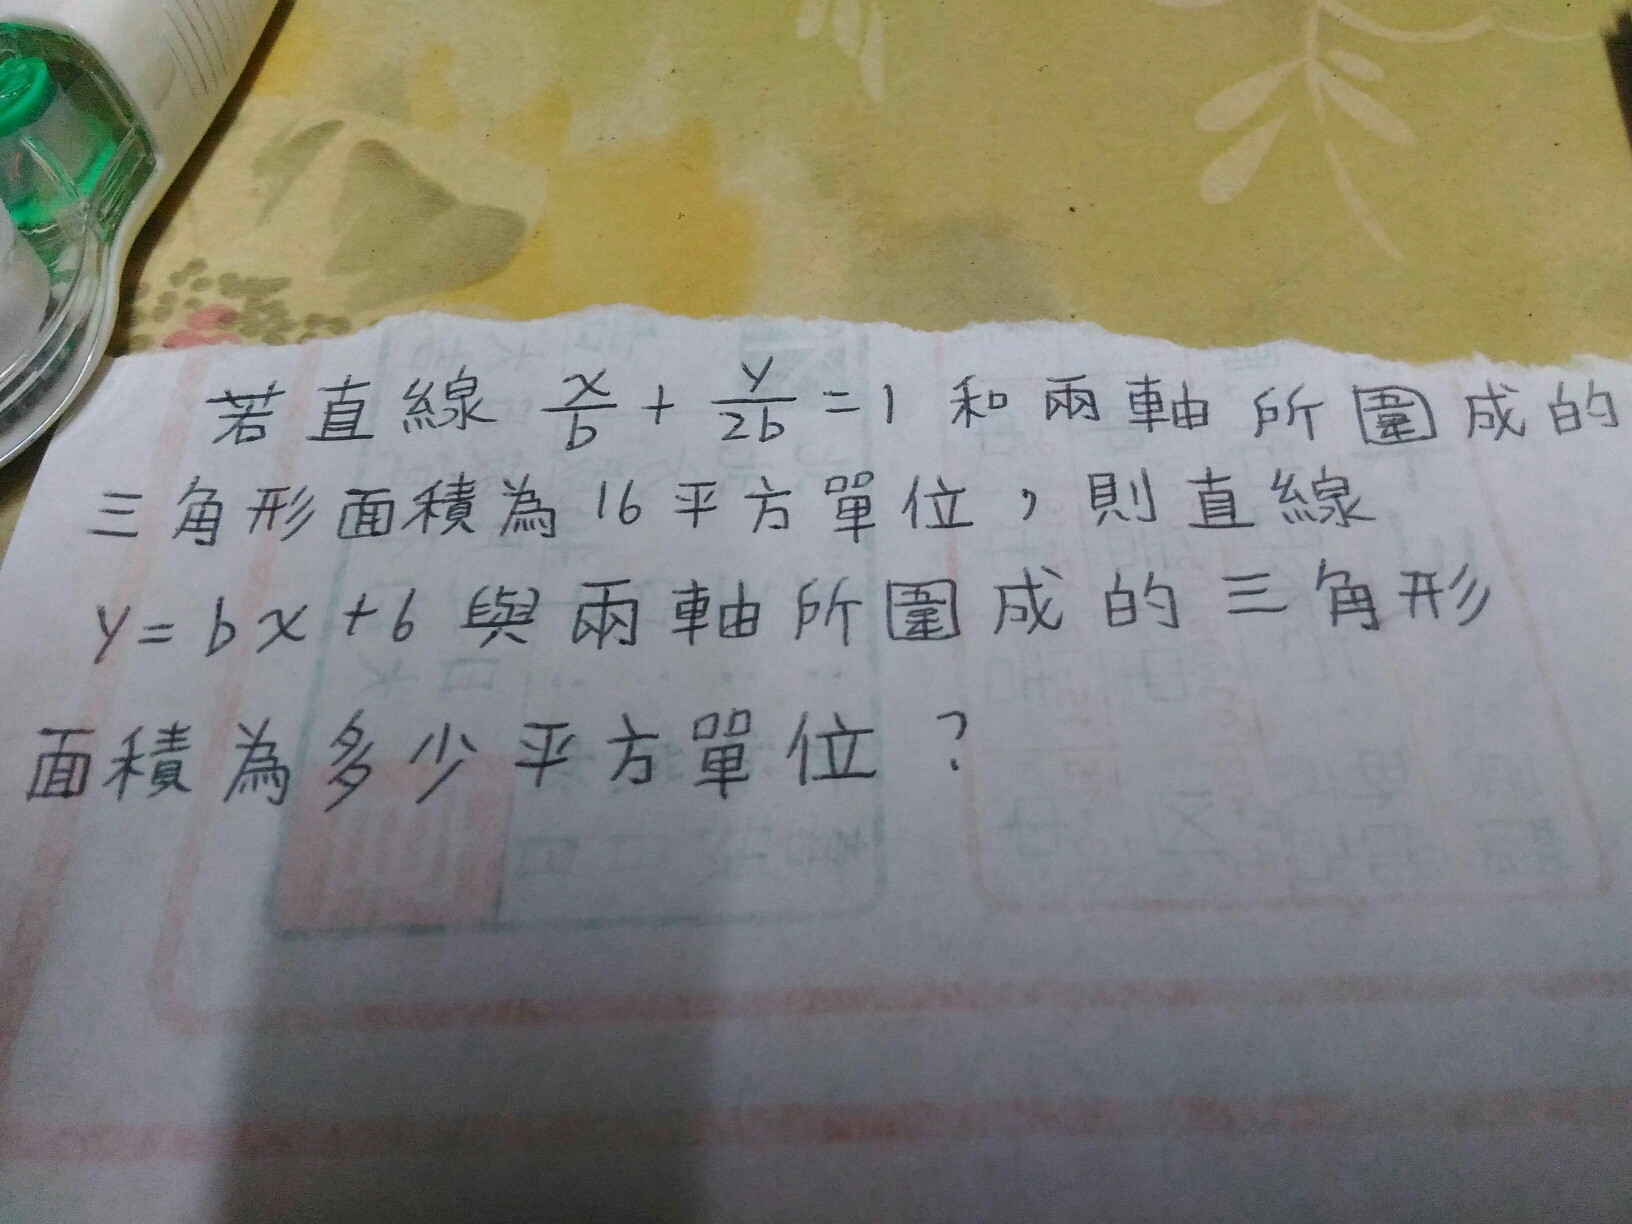 若直線 x/b + y/2b = 1 和兩軸所圍成的
三角形面積為16平方單位，則直線
y = bx + 6 與兩軸所圍成的三角形
面積為多少平方單位？